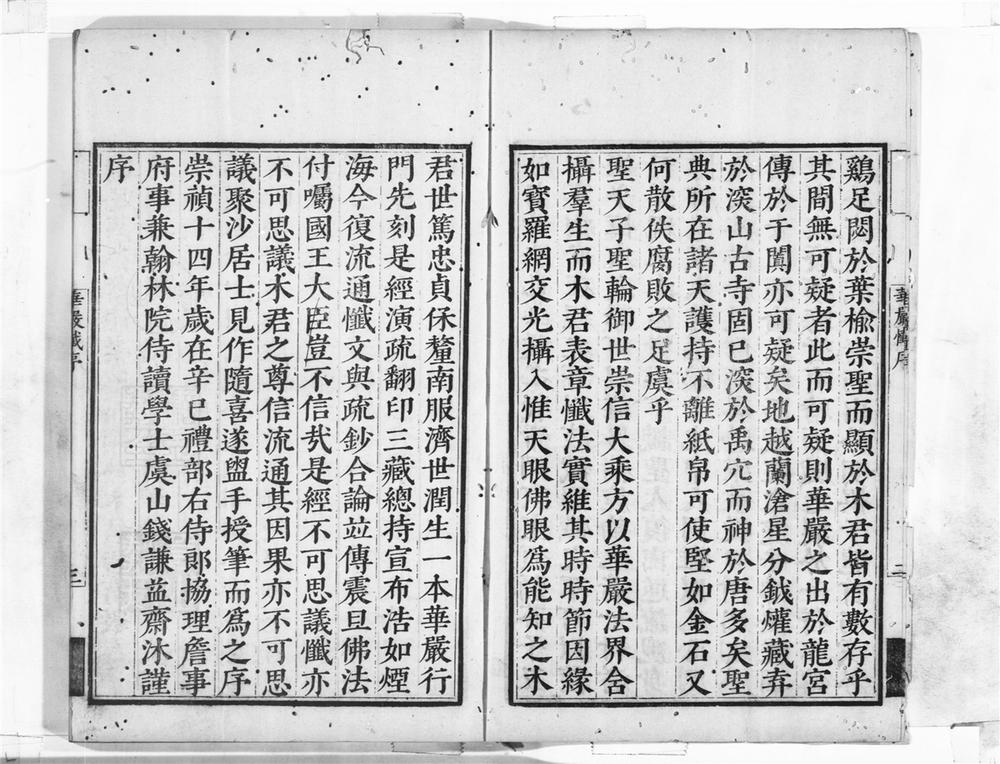 鷄足閟於葉榆崇聖而顯於木君皆有數存乎
其間無可疑者此而可疑則華嚴之出於龍宮
傳於于闐亦可疑矣地越蘭滄星分鉞爟藏弆
於深山古寺固已深於禹穴而神於唐多矣聖
典所在諸天護持不離紙帛可使堅如金石又
何散佚腐敗之足虞乎
聖天子聖輪御世崇信大乘方以華嚴法界含
攝羣生而木君表章懺法實維其時時節因緣
如寶羅網交光攝入惟天眼佛眼爲能知之木
華嚴懺序
二
君世篤忠貞保釐南服濟世潤生一本華嚴行
門先刻是經演疏翻印三藏總持宣布浩如煙
海今復流通懺文與疏鈔合論竝傳震旦佛法
付囑國王大臣豈不信哉是經不可思議懺亦
不可思議木君之尊信流通其因果亦不可思
議聚沙居士見作隨喜遂盥手授筆而爲之序
崇禎十四年歲在辛巳禮部右侍郎協理詹事
府事兼翰林院侍讀學士虞山錢謙益齋沐謹
序
華嚴懺序
三